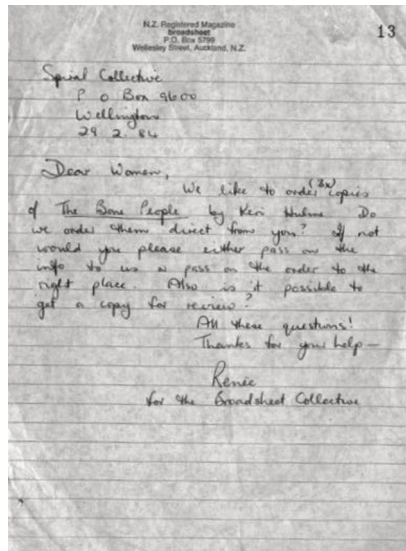 N.Z. Registered Magazine
broadsheet
P.O. Box 5799
Wellesley Street, Auckland, N.Z.
13
Spiral Collective
P O Box 9600
Wellington
29. 2. 84
Dear Women,
We like to order (3x) copies
of The Bone People by Keri Hulme Do
we order them direct from you? If not
would you please either pass on the
info to us or pass on the order to the
right place. Also is it possible to
get a copy for review?
All these questions!
Thanks for your help —
Renée
for the Broadsheet Collective